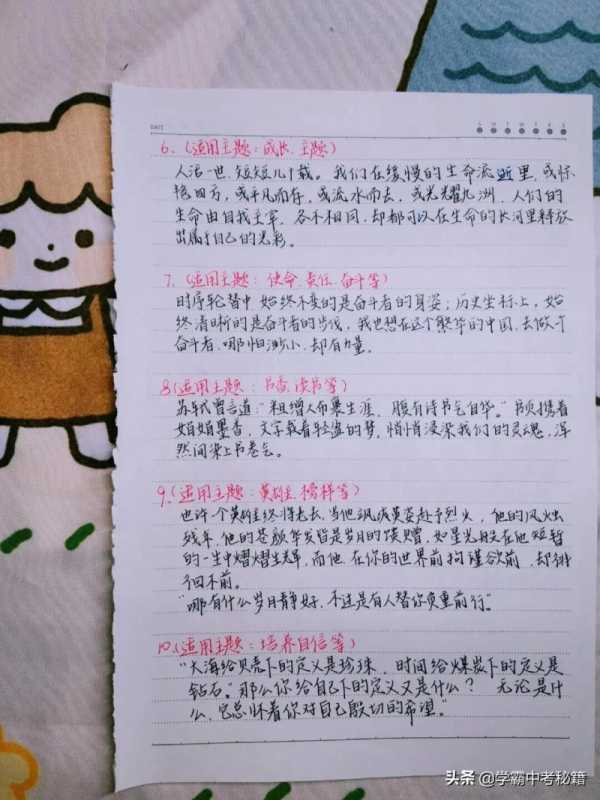 DATE
6.(适用主题:成长.主题)
人活一世,短短几十载。我们在缓慢的生命流逝里,或惊
艳四方,或平凡而存,或流水而去,或光耀九洲,人们的
生命由自我主宰,各不相同,却都可以在生命的长河里释放
出属于自己的光彩。
7.(适用主题:使命.责任.奋斗等)
时序轮替中,始终不变的是奋斗者的身姿;历史坐标上,始
终清晰的是奋斗者的步伐,我也想在这个繁华的中国,去做个
奋斗者,哪怕渺小,却有力量。
8.(适用主题:书香.读书等)
苏轼曾言道:“粗缯大布裹生涯,腹有诗书气自华。”书页携着
娟娟墨香,文字载着轻盈的梦,悄悄浸染我们的灵魂,浑
然间染上书卷气。
9.(适用主题:英雄.榜样等)
也许一个英雄终将老去,当他飒爽英姿赴于烈火,他的风烛
残年,他的苍颜华发皆是岁月的馈赠,如星光般在他短暂
的一生中熠熠生辉,而他,在你的世界前拘谨欲前,却徘
徊不前。
“哪有什么岁月静好,不过是有人替你负重前行”。
10.(适用主题:培养自信等)
“大海给贝壳下的定义是珍珠,时间给煤炭下的定义是
钻石。那么你给自己下的定义又是什么? 无论是什
么,它总怀着你对自己殷切的希望。”
头条 @学霸中考秘籍